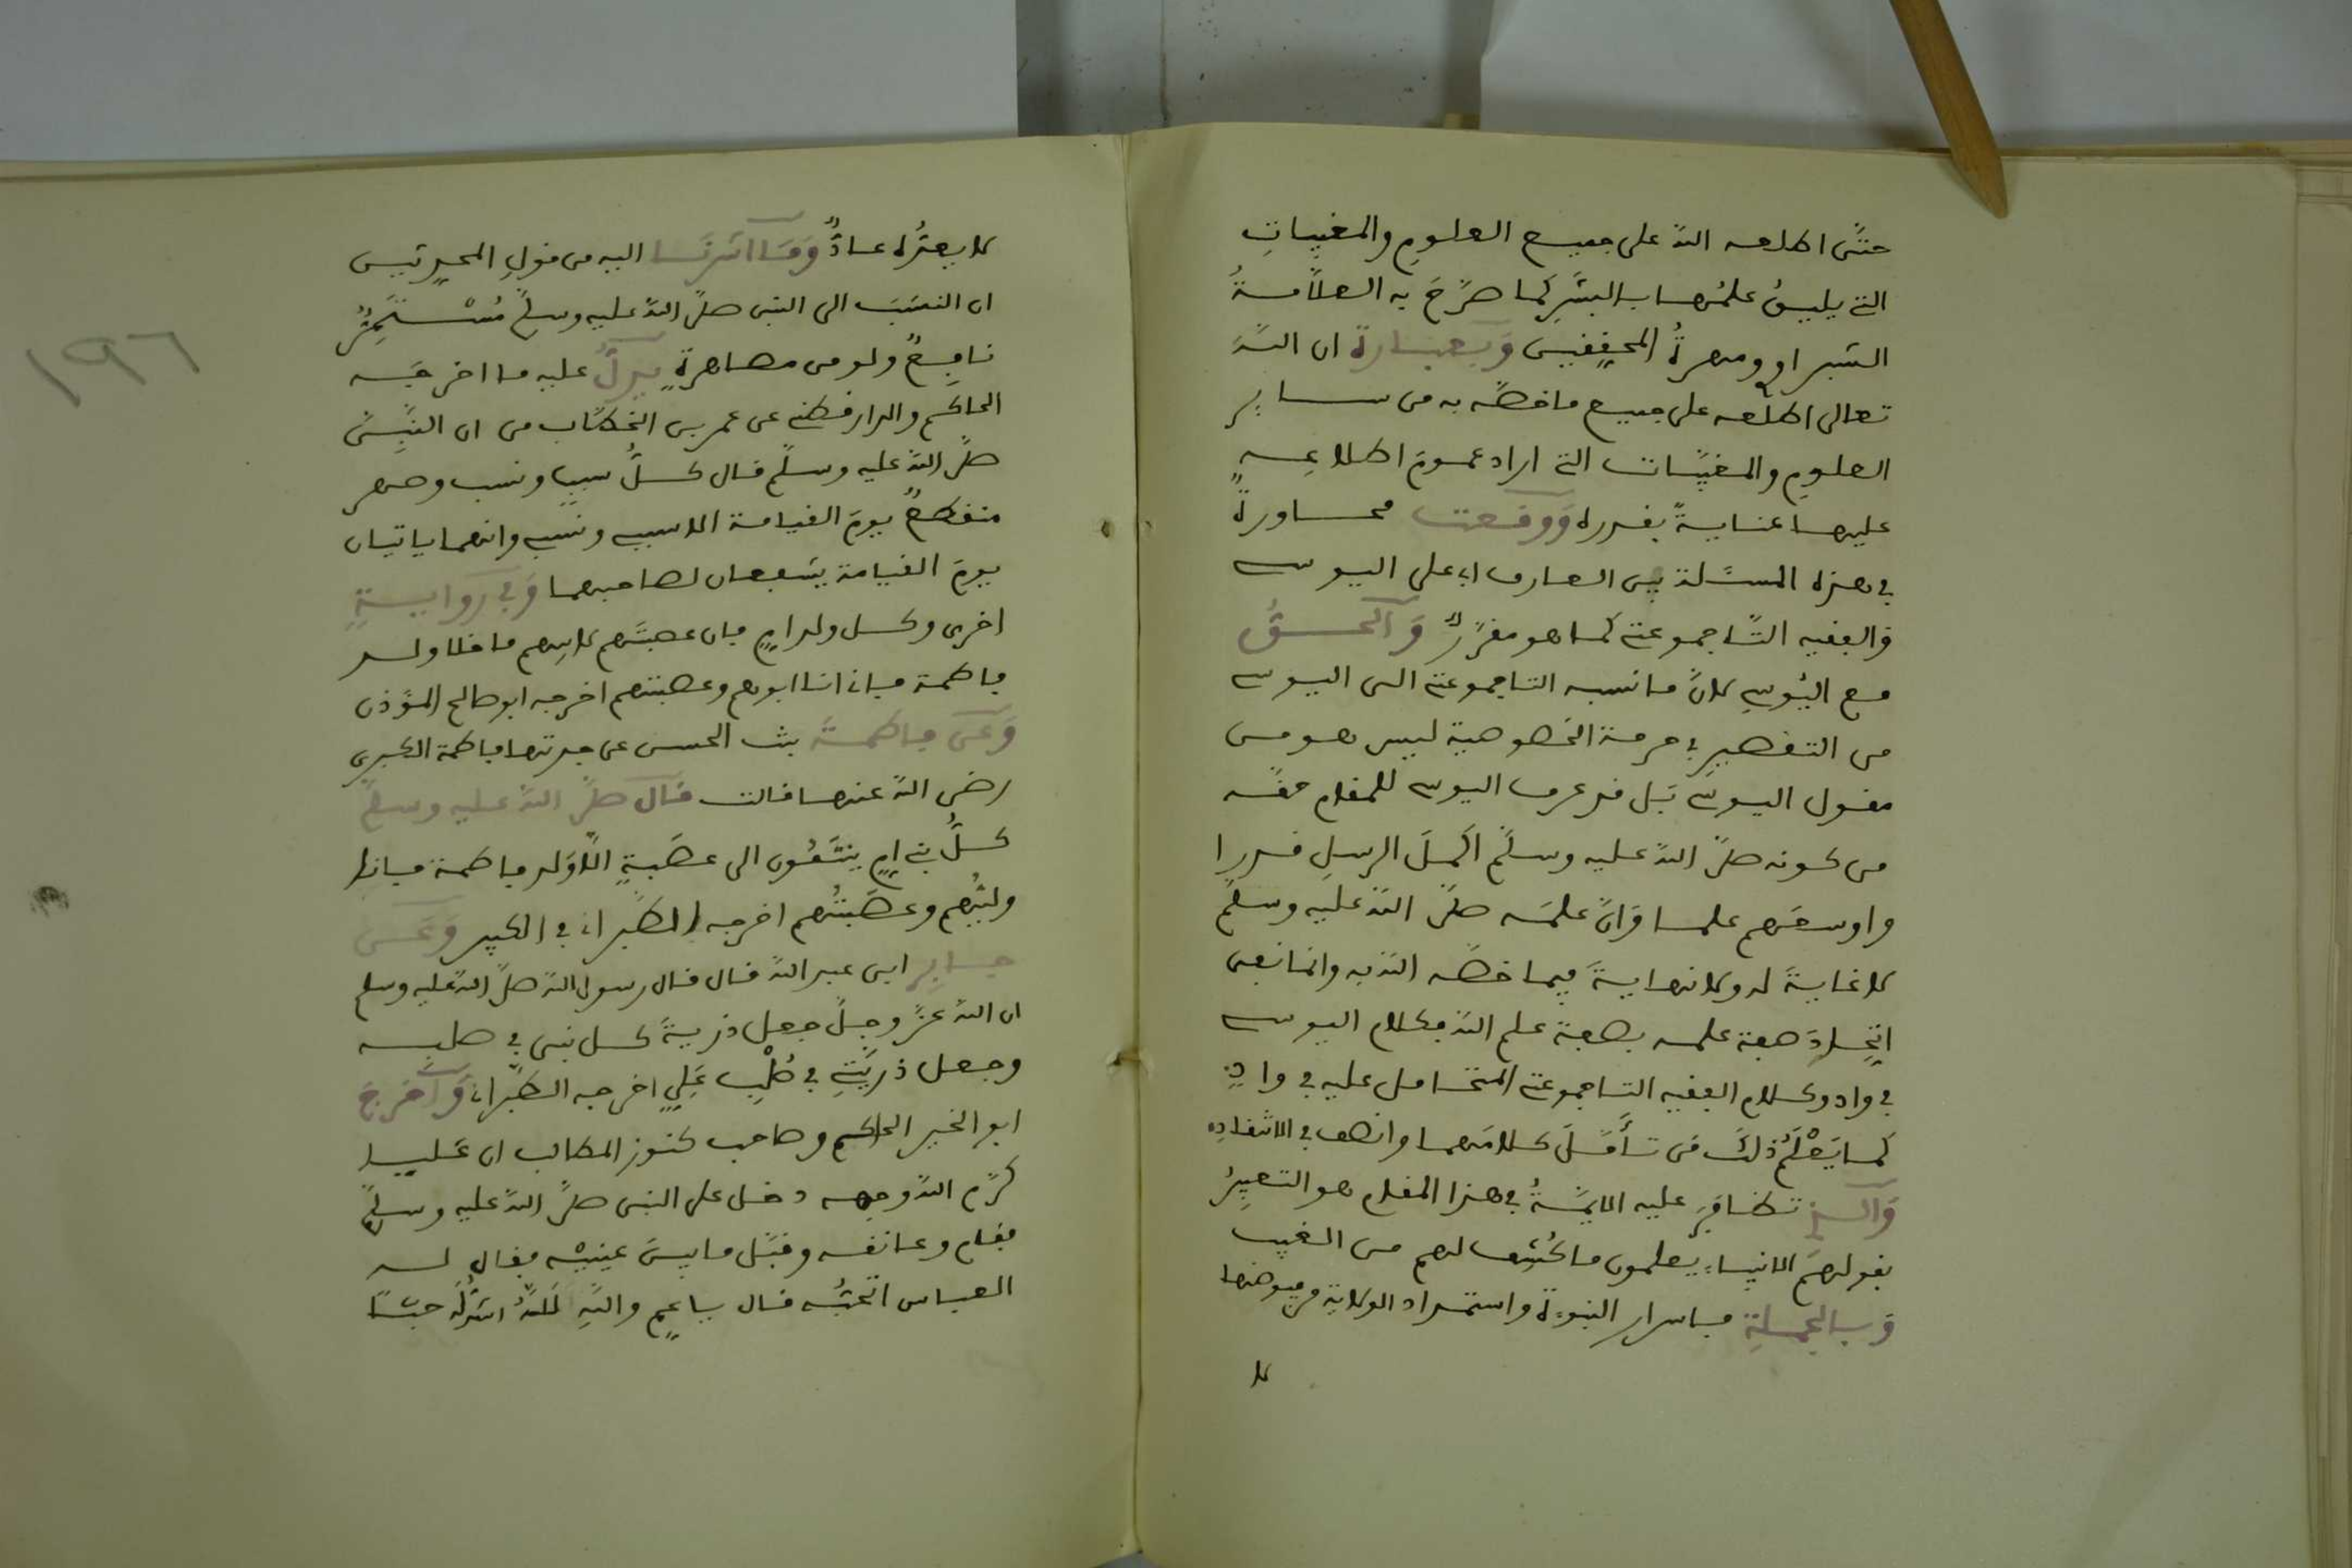 حتّى اطلعه اللّه على جميع العلوم والمغيبات
التي يليق علمُها بالبشر كما صرّح به العلّامةُ
الشبراوي ومهرةُ المحققين وبعبارة ان اللّه
تعالى اطلعه على جميع ما خصّه به من ساير
العلوم والمغيّبات التي اراد عموم اطلاعه
عليها عنايةً بقدره ووقعت محاورةٌ
في هذه المسئلة بين العارف ابي علي اليوسي
والفقيه التّاجموعتي كما هو مقرّرٌ والحقُّ
مع اليُوسي لانّ ما نسبه التاجموعتي الى اليوسي
من التقصير في حرمة الخصوصية ليس هو من
مقول اليوسي بَل قد عرف اليوسي للمقام حقّه
من كونه صلّى اللّه عليه وسلّم اكملَ الرسل قدرا
واوسعَهم علما وانّ علمَه صلّى اللّه عليه وسلّم
لا غايةَ له ولا نهايةَ فيما خصّه اللّه به وانما نفى
اتّحادَ صفة علمه بصفة علم اللّه فكلام اليوسي
في واد وكلام الفقيه التاجموعتي المتحامل عليه في وادٍ
كما يَعْلَمُ ذلك مَن تأمّلَ كلامَهما وانصف في الانتقاد
والذي تظافر عليه الايمّةُ في هذا المقام هو التعبيرُ
بقولهم الانبياء يعلمون ما كُشِف لهم من الغيب
وبالجملةِ فاسرار النبوّة واستمداد الولاية من فيوضها
لا
لا يعتره عادٌّ وَمَا اشرنا اليه من قولِ المحيريّين
ان النسَبَ الى النبى صلّى اللّه عليه وسلّم مُسْتَمِرٌّ
نافعٌ ولو من مصاهرةٍ يدلُّ عليه ما اخرجَه
الحاكم والدارقطني عن عمر بن الخطّاب من ان النّبىّ
صلّى اللّه عليه وسلّم قال كلُّ سببٍ ونسب وصهر
منقطعٌ يومَ القيامة الا سببي ونسَبي وانهما ياتيان
يوم القيامة يشفعان لصاحبهما وَفي روايةٍ
اخرى وكل ولد امٍ فان عصبتَهم لابيهم ما خلا ولد
فاطمة فإني انا ابوهم وعصبتهم اخرجه ابو صالح المؤذن
وَعَن فاطمةَ بنت الحسن عن جدتها فاطمة الكبرى
رضى اللّه عنها قالت قال صلّى اللّه عليه وسلّم
كلُّ بني امٍ ينتمُون الى عصَبةٍ الّا وَلد فاطمة فانا
وليُّهم وعصَبتُهم اخرجه الطبراني في الكبير وَعَن
جابرِ ابن عبد اللّه قال قال رسول اللّه صلّى اللّه عليه وسلم
ان اللّه عزّ وجلّ جعل ذريةَ كل نبى في صلبه
وجعل ذريّتي في صُلْبِ عَليٍ اخرجه الطبراني وَاَخرجَ
ابو الخير الحاكم وصاحب كنوز المطالب ان عَليا
كرّم اللّه وجهه دخل على النبى صلّى اللّه عليه وسلّم
فقام وعانقه وقبّل ما بين عينيْه فقال له
العباس اتحبُّه قال يا عمِ واللّهِ لَلّهُ اشدُّ لَه حبّا
١٩٦